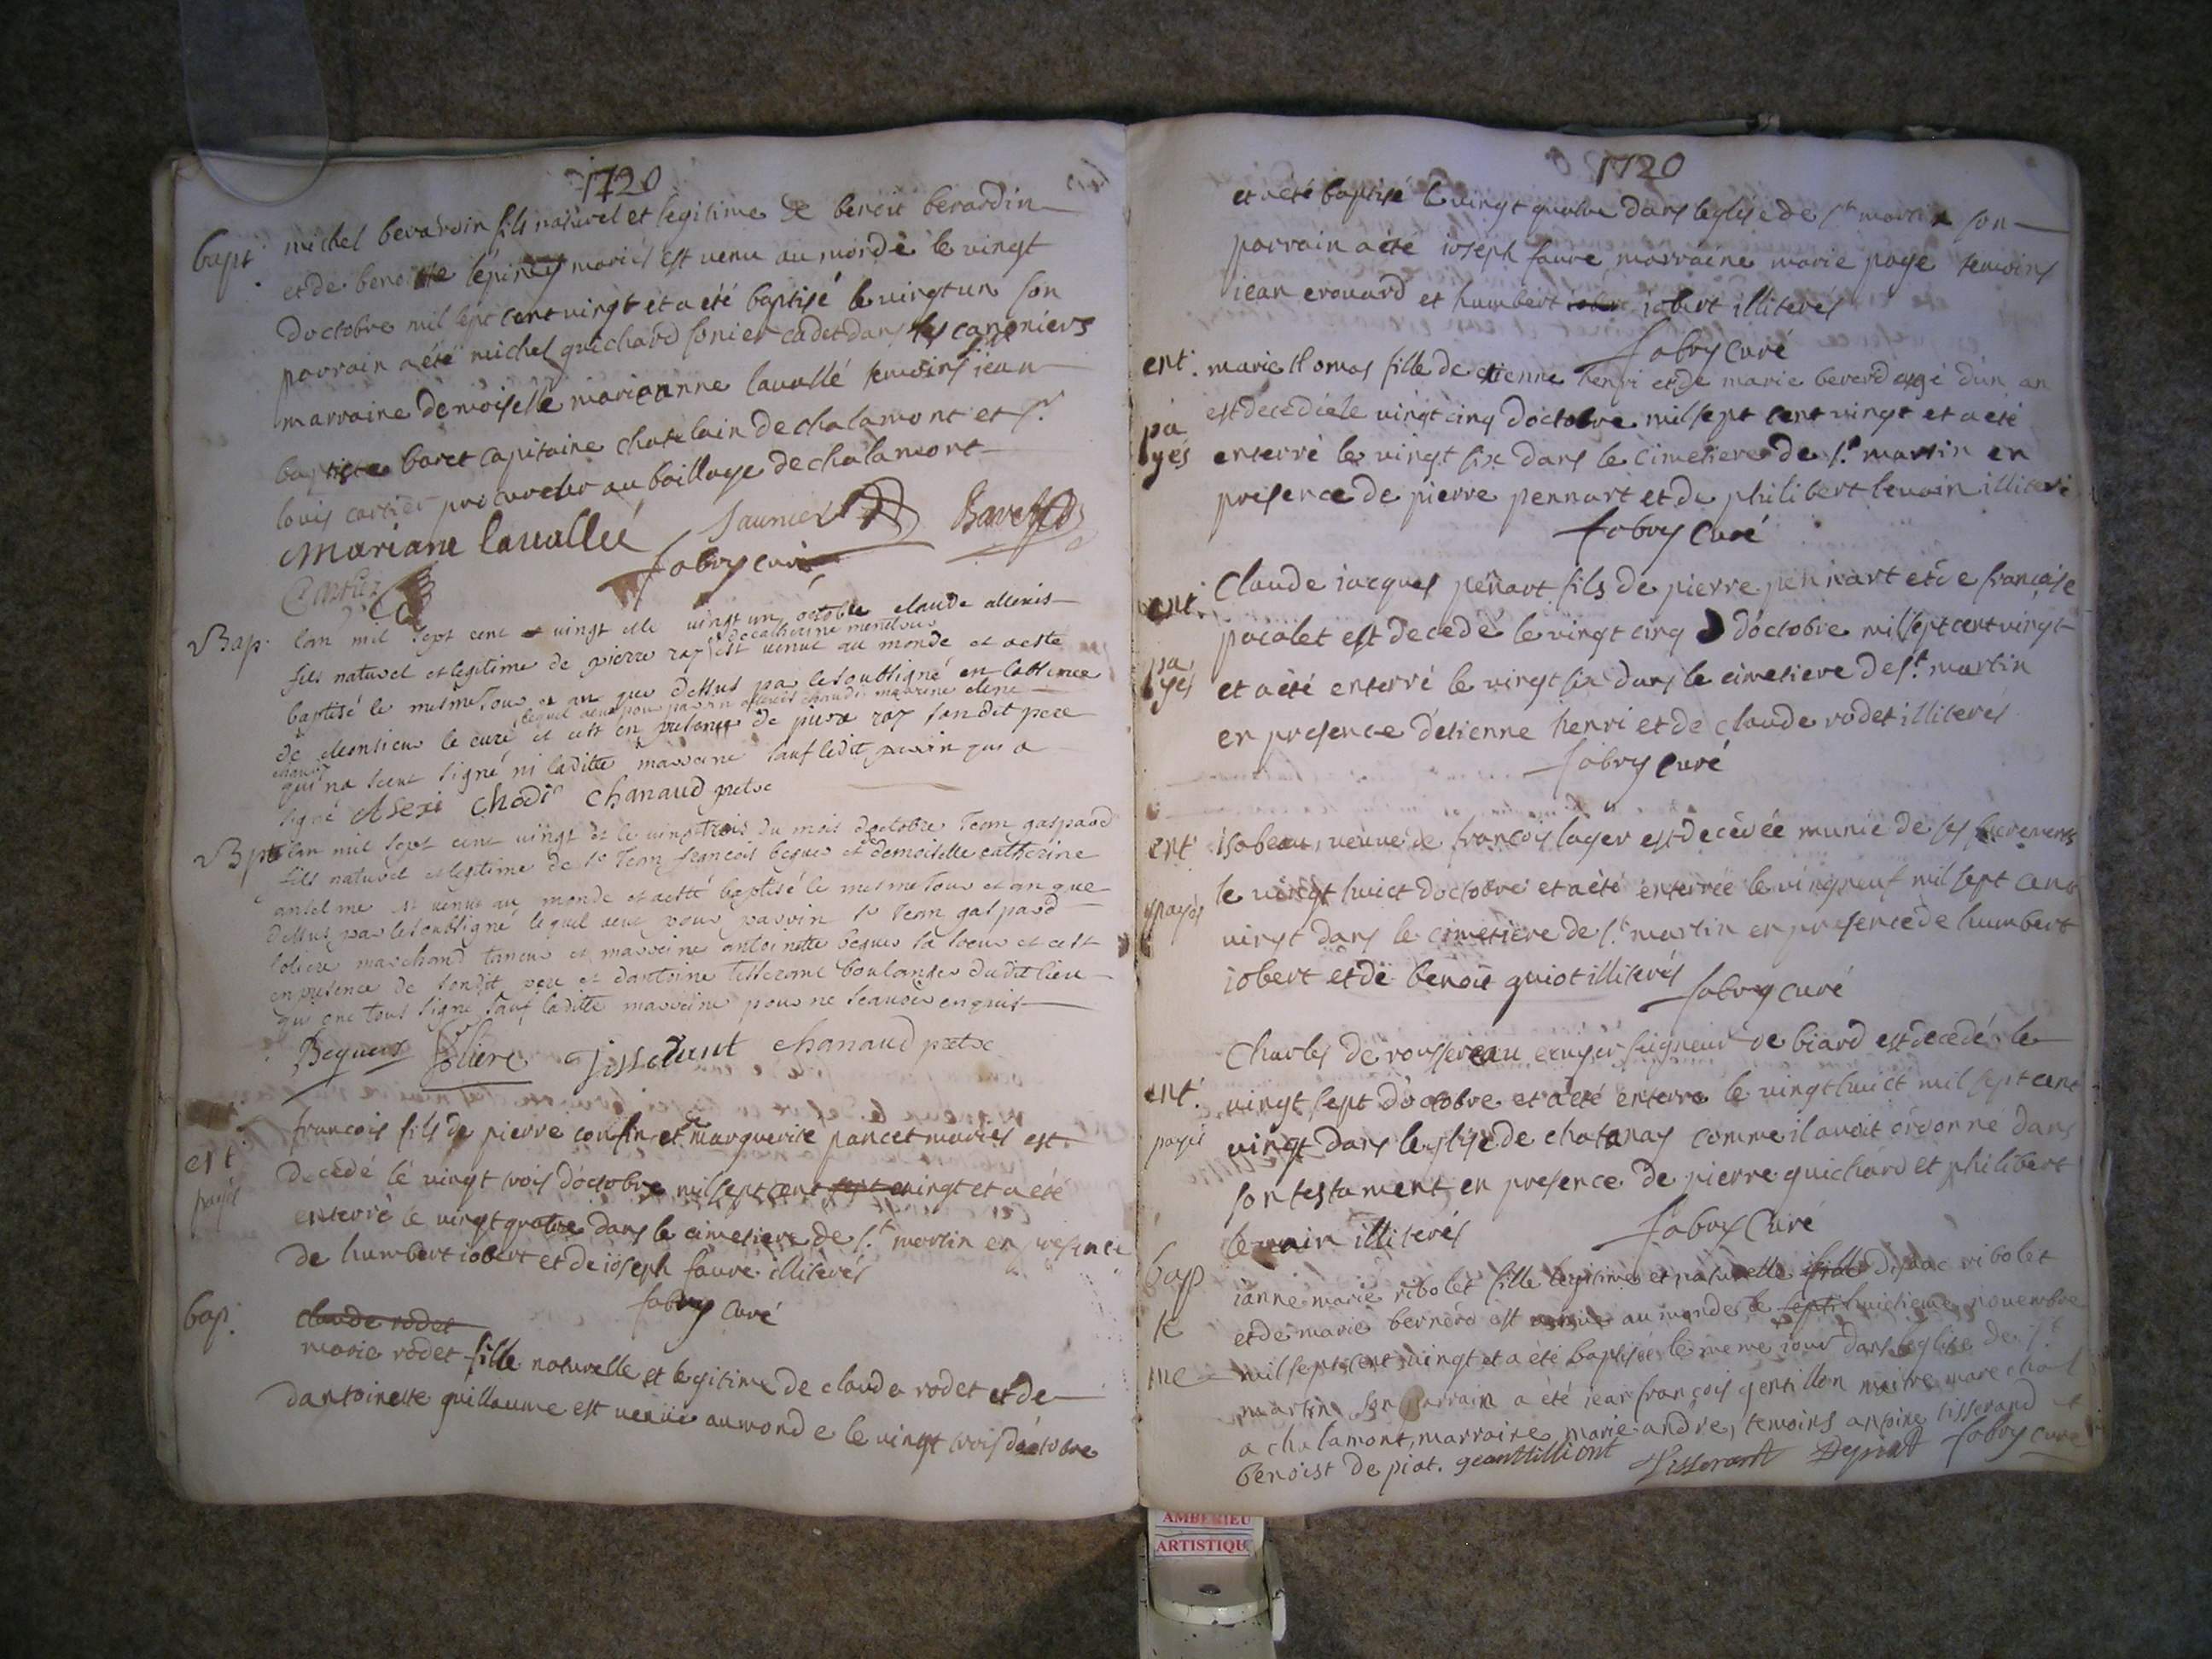 1720
bapt. michel berardin fils naturel et legitime de benoit berardin
et de benoitte lépiney mariés est venu au monde le vingt
doctobre mil sept cent vingt et a été baptisé le vingt un son
parrain a été michel guichard sonier cadet dans les canoniers
marraine demoiselle marieanne lavallé temoins jean
baptiste baret capitaine chatelain de chalamont et sr
louis cartier procureur au baillage de chalamont
Mariane lavallée Saunier Baret
fabry curé
Cartier
Bap. lan mil sept cent vingt et le vingt un octobre claude allexis
et de catherine
fils naturel et legitime de pierre ray est venu au monde et a esté
baptisé le mesme jour et an que dessus par le soubsigné en labsence
lequel a eu pour parrin alexis chaudi marrine clene
de monsieur le curé et cest en presence de pierre ray son dit pere
chaudy
qui na sceut signé ni laditte marraine sauf ledit parrin qui a
signé Alexi Chodi Chanaud pretre
Bpt lan mil sept cent vingt et le vingt trois du mois doctobre Jean gaspard
fils naturel et legitime de sr Jean françois beques et demoiselle catherine
anselme est venu au monde et a esté baptisé le mesme jour et an que
dessus par le soubsigné lequel a eu pour parrin sr Jean gaspard
soliere marchand taneur et marraine antoinette beques sa soeur et cest
en presence de sondit pere et dantoine tisserant boulanger dudit lieu
qui ont tous signé sauf laditte marraine pour ne scauoir enquis
Bequess Soliere Tisserant Chanaud pretre
ent. françois fils de pierre confin et de marguerite pancet mariés est
payés decedé le vingt trois doctobre mil sept cent sept vingt et a été
enterré le vingt quatre dans le cimetiere de st martin en presence
de humbert iobert et de ioseph faure illiterés
fabry curé
bap. claude rodet
marie rodet fille naturelle et legitime de claude rodet et de
dantoinette guillaume est venue au monde le vingt trois doctobre
1720
et a été baptisé le vingt quatre dans leglise de st martin son
parrain a été ioseph faure marraine marie page temoins
iean erouard et humbert iobert illiterés
fabry curé
ent. marie thomas fille de etienne henri et de marie bererd agé dun an
est decedée le vingt cinq doctobre mil sept cent vingt et a été
payés enterré le vingt six dans le cimetiere de st martin en
presence de pierre pennart et de philibert levrain illiteré
fabry curé
ent. Claude iacques penart fils de pierre pennart et de françoise
pacalet est decedé le vingt cinq doctobre mil sept cent vingt
payés et a été enterré le vingt six dans le cimetiere de st martin
en presence détienne henri et de claude rodet illiterés
fabry curé
ent. isabeau, veuve de françois lager est decédée munie de ses sacrements
le vingt huict doctobre et a été enterrée le vingneuf mil sept cent
payés vingt dans le cimetiere de st martin en presence de humbert
iobert et de benoit guiot illiterés fabry curé
Charles de roussereau ecuyer seigneur de biard est decedé le
ent. vingt sept doctobre et a été enterré le vingt huict mil sept cent
payés vingt dans leglise de chatanay comme il avoit ordonné dans
son testament en presence de pierre guichard et philibert
levrain illiterés fabry Curé
bapteme ianne marie ribolet fille legitime et naturelle disaac ribolet
et de marie bernerd est venue au monde le huictieme novembre
mil sept cent vingt et a été baptisée le meme iour dans leglise de st
martin son parrain a été iean françois gentillon maitre marechal
a chalamont, marraine marie andre, temoins antoine tisserand et
benoist de piat. geantilliont Tisserant Depiat fabry curé
AMBERIEU
ARTISTIQU